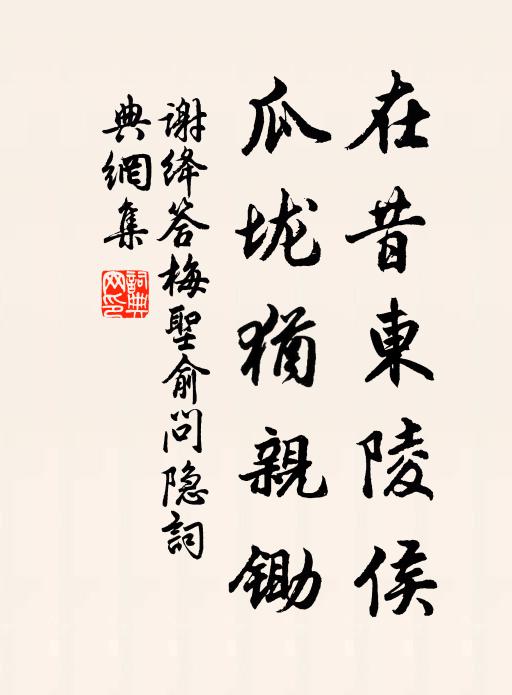 在昔東陵侯
瓜垅猶親鋤
谢绛答梅聖俞问隐詞
典網集
詞典网印